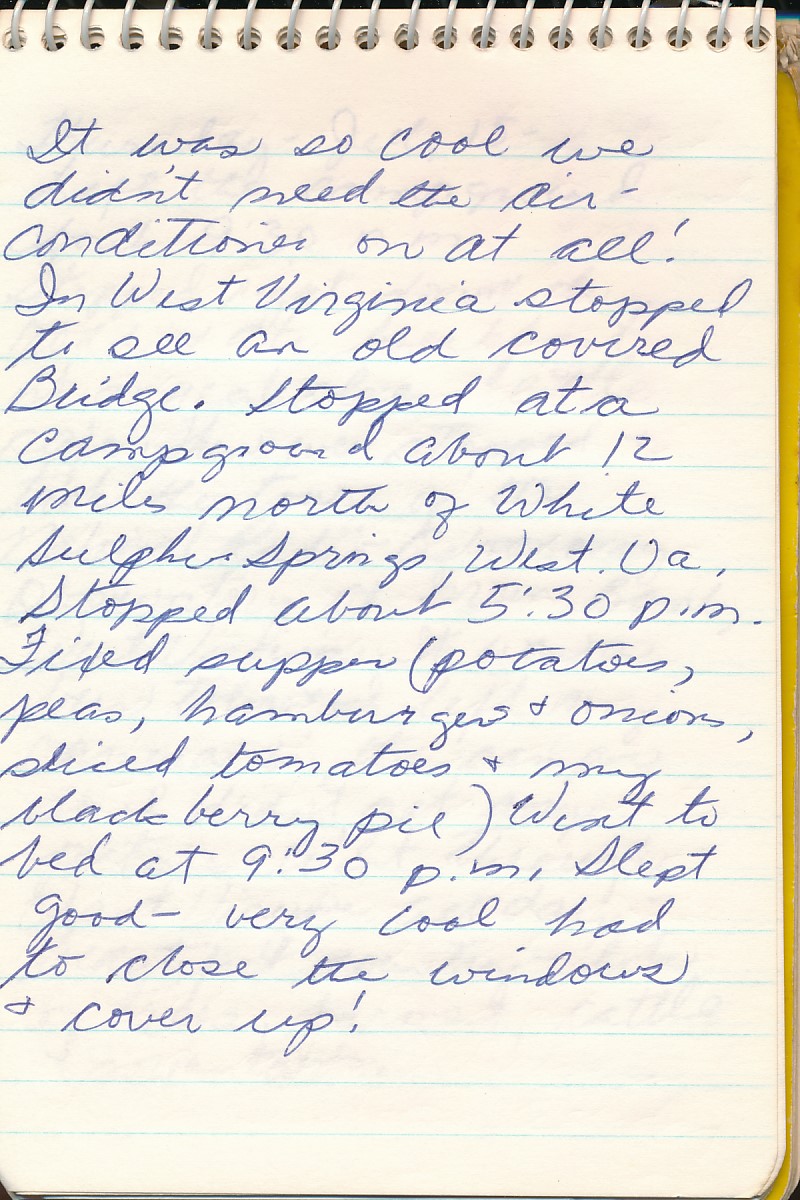 It was so cool we
didn't need the air-
conditioner on at all!
In West Virginia stopped
to see an old covered
Bridge. Stopped at a
campground about 12
miles north of White
Sulphur Springs, West. Va.
Stopped about 5:30 p.m.
Fixed supper (potatoes,
peas, hamburgers & onions,
sliced tomatoes & my
blackberry pie) Went to
bed at 9:30 p.m. Slept
good- very cool had
to close the windows
& cover up!